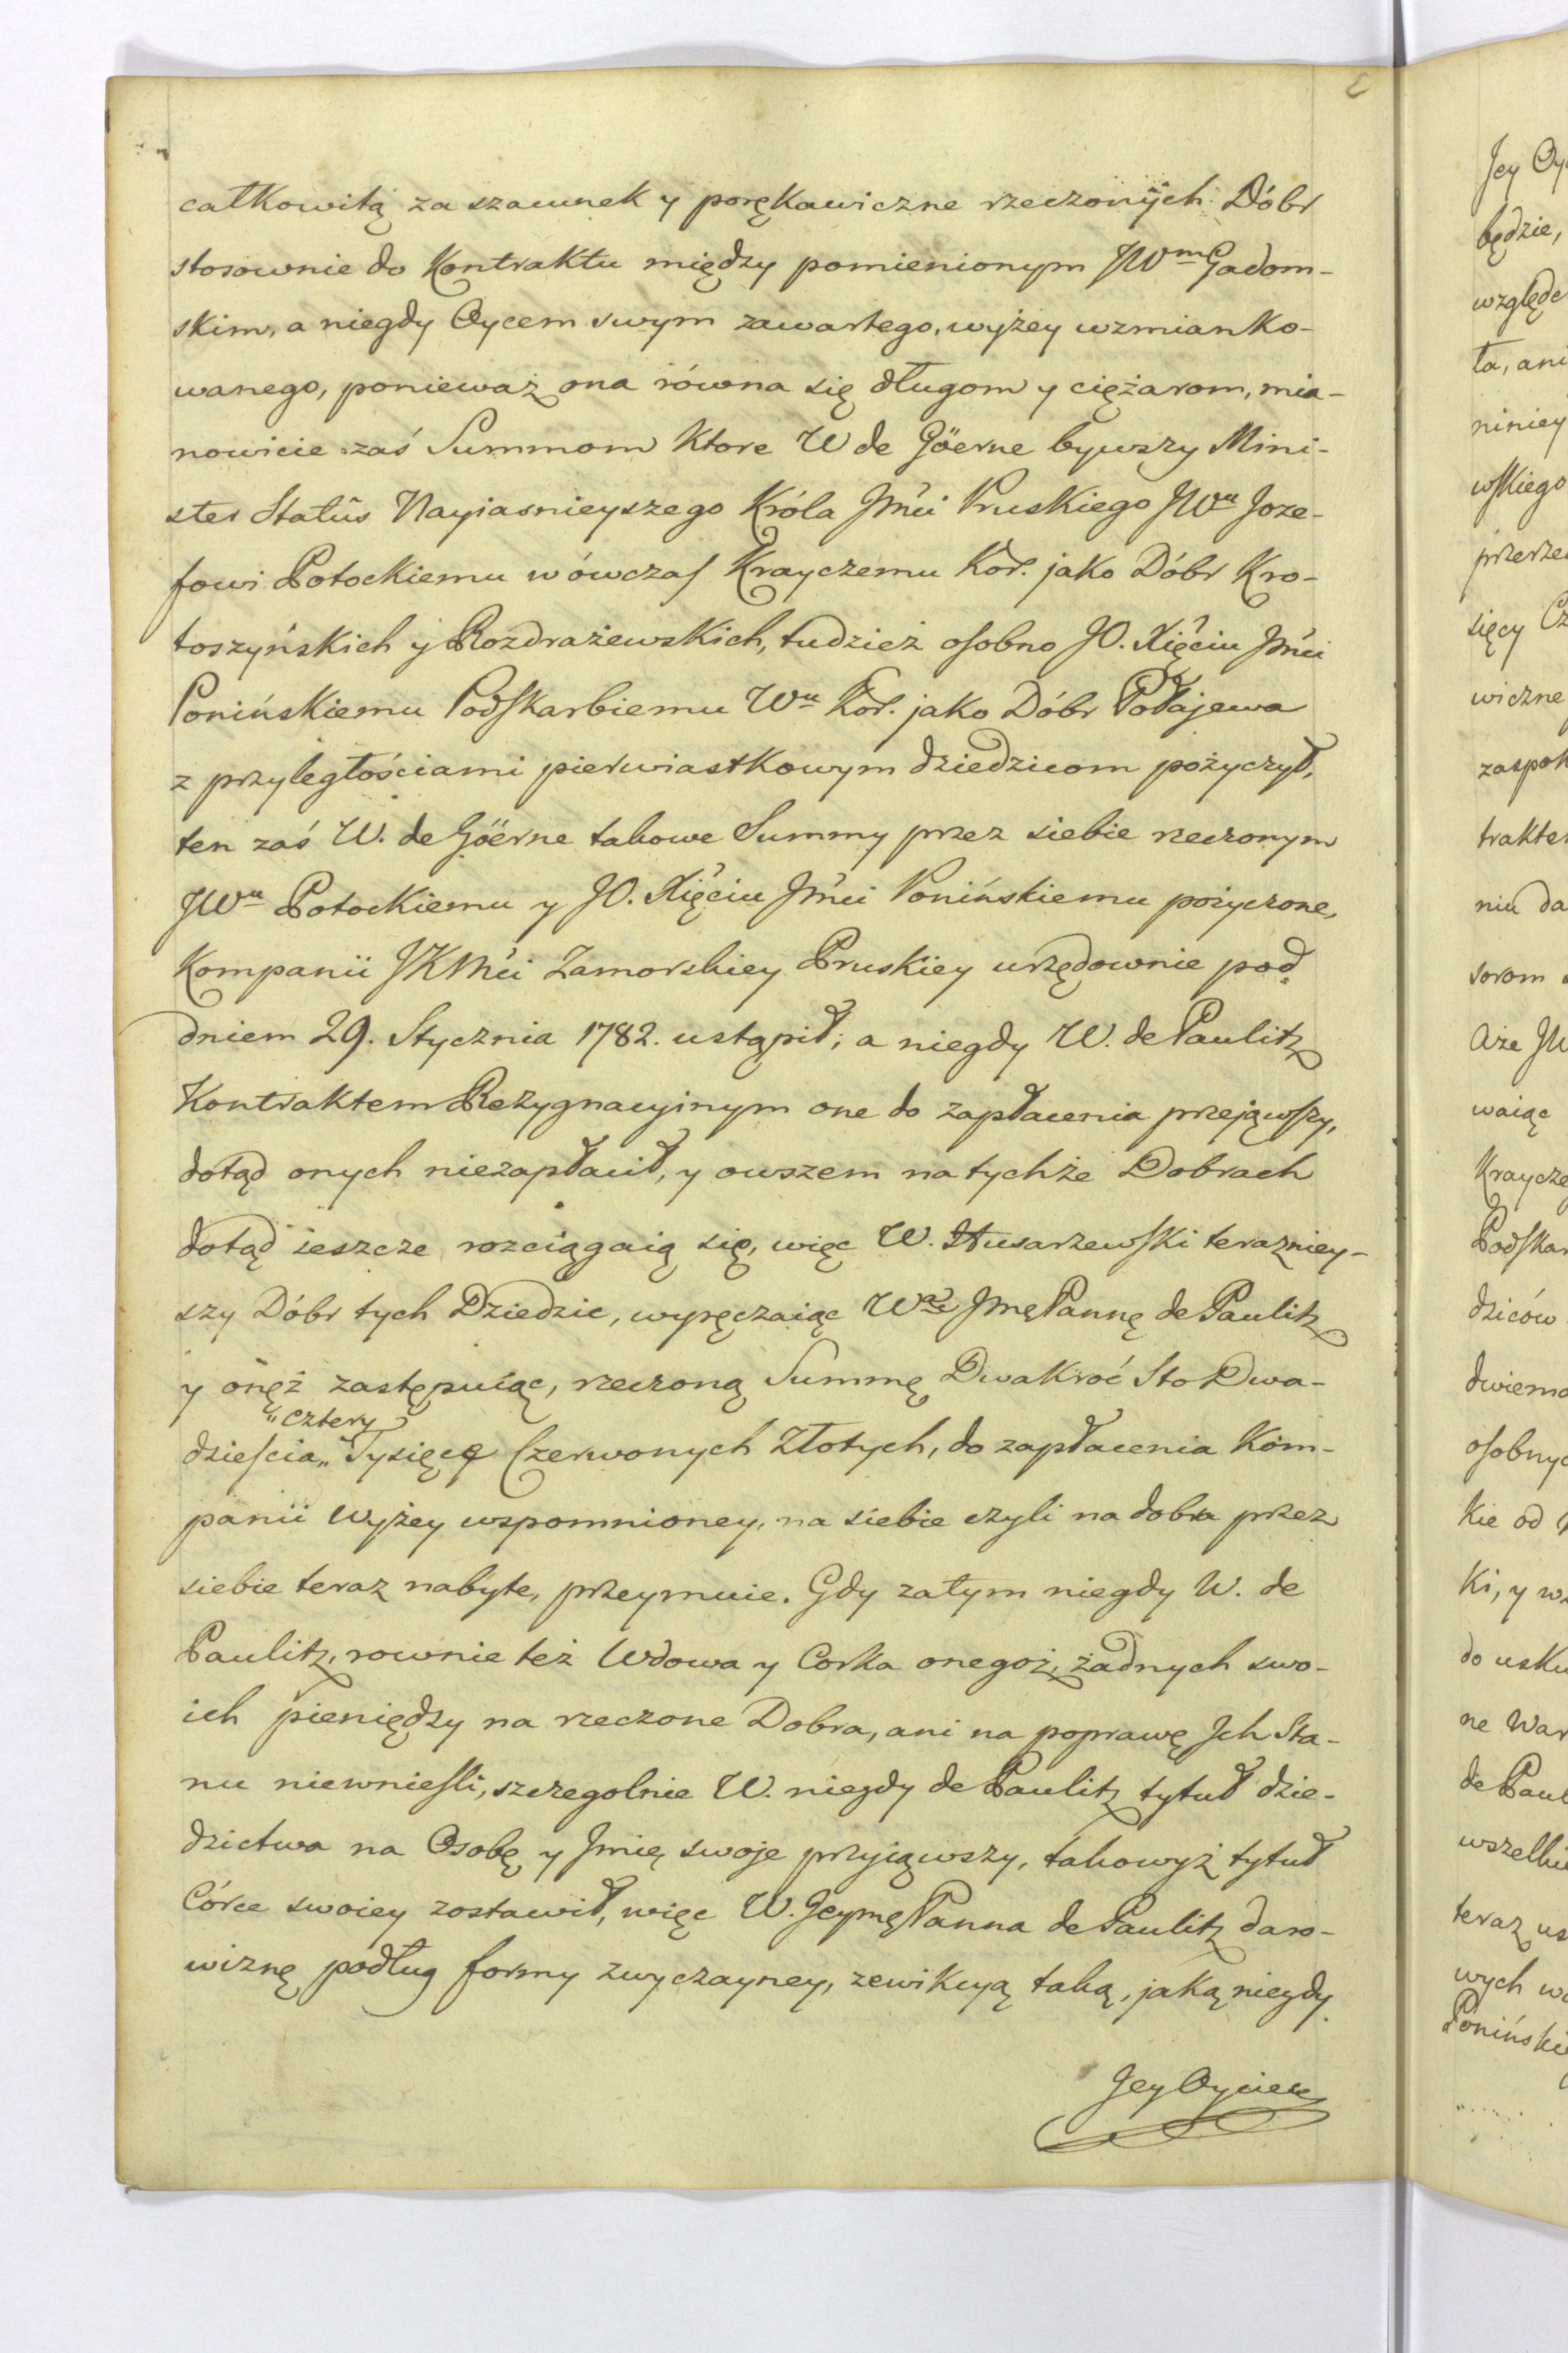 całkowitą za szacunek y porękawiczne rzeczonych Dóbr
stosownie do Kontraktu między pomienionym JWm Gadom-
skim, a niegdy Oycem swym zawartego, wyżey wzmianko-
wanego, ponieważ ona równa się długom y ciężarom, mia-
nowicie zaś Summom Ktore W de Göerne bywszy Mini-
ster Statûs Nayiasnieyszego Króla Jmći Pruskiego JWu Joze-
fowi Potockiemu wówczas Krayczemu Kor. jako Dóbr Kro-
toszyńskich y Rozdrażewskich, tudzież osobno JO. Xięciu Jmći
Ponińskiemu Podskarbiemu Wu Kor. jako Dóbr Połajewa
z przyległościami pierwiastkowym dziedzicom pożyczył,
ten zaś W. de Göerne takowe Summy przez siebie rzeczonym
JWu Potockiemu y JO. Xięciu Jmći Ponińskiemu pożyczone,
Kompanii JKMći Zamorskiey Pruskiey urzędownie pod
dniem 29. Stycznia 1782. ustąpił; a niegdy W. de Paulitz
Kontraktem Rezygnacyinym one do zapłacenia przejąwszy,
dotąd onych niezapłacił, y owszem na tychże Dobrach
dotąd ieszcze rozciągaią się, więc W. Husarzewski terazniey-
szy Dóbr tych Dziedzic, wyręczaiąc Wą Jmę Pannę de Paulitz
y onęż zastępuiąc, rzeczoną Summę Dwakroć Sto Dwa-
"cztery
dziescia" Tysięcy Czerwonych Złotych, do zapłacenia Kom-
panii wyżey wspomnioney, na siebie czyli na dobra przez
siebie teraz nabyte, przeymuie. Gdy zatym niegdy W. de
Paulitz, rownie też Wdowa y Corka onegoż, żadnych swo-
ich pieniędzy na rzeczone Dobra, ani na poprawę Jch Sta-
nu niewniesli, szczegolnie W. niegdy de Paulitz tytuł dzie-
dzictwa na Osobę y Jmię swoje przyiąwszy, takowyż tytuł
Córce swoiey zostawił, więc W. Jeymę Panna de Paulitz daro-
wiznę podług formy zwyczayney, zewikcyą taką, jaką niegdy
Jey Oyciec
Jey Oy
będzie,
względe
ta, ani
niniey
wskiego
przerze
sięcy Cz
wiczne
zaspok
trakte
niu da
sorom
Aże JW
waiąc
Kraycze
Podskar
dziców
dwiema
osobnyc
Kie od
Ki, y w
do usku
ne War
de Paul
wszelki
teraz us
wych w
Ponińskie